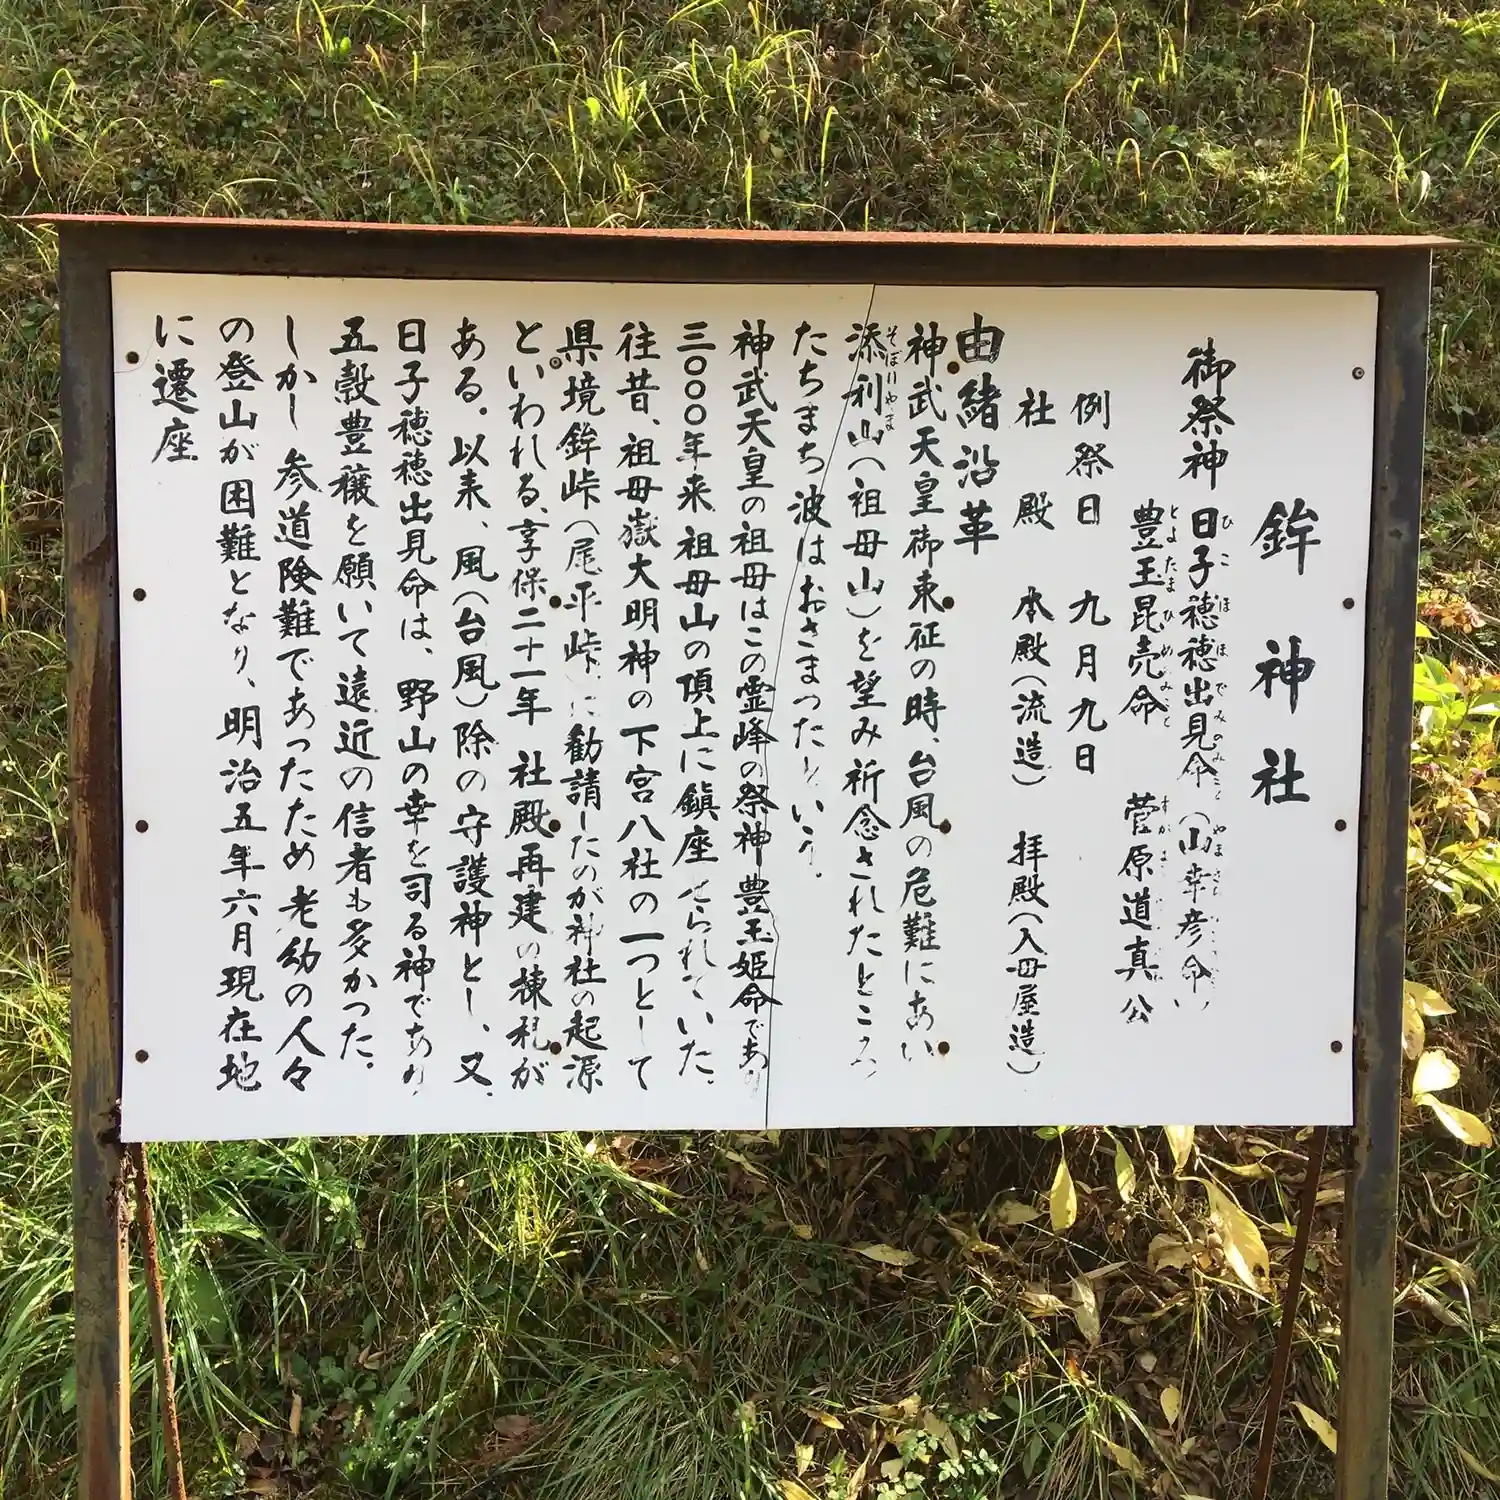 鉾神社
御祭神 日子穂穂出見命(山幸彦命)
ひこほほでみのみこと やまさち
豊玉昆売命 菅原道真公
とよたまひめのみこと すが
例祭日 九月九日
社殿 本殿(流造) 拝殿(入母屋造)
由緒沿革
神武天皇御東征の時、台風の危難にあい
添利山(祖母山)を望み祈念されたところ
そぼりやま
たちまち波はおさまったという。
神武天皇の祖母はこの霊峰の祭神 豊玉姫命であり
三〇〇〇年来 祖母山の頂上に鎮座せられていた。
往昔、祖母嶽大明神の下宮八社の一つとして
県境鉾峠(尾平峠)に勧請したのが神社の起源
といわれる、享保二十一年 社殿再建の棟札が
ある。以来、風(台風)除の守護神とし、又、
日子穂穂出見命は、野山の幸を司る神であり、
五穀豊穣を願いて遠近の信者も多かった。
しかし 参道険難であったため老幼の人々
の登山が困難となり、明治五年六月現在地
に遷座